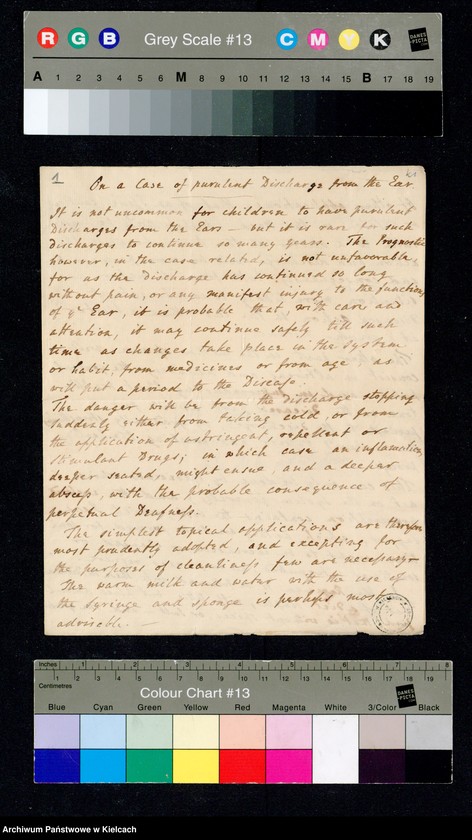 R G B Grey Scale #13 C M Y K DANES PICTA
A 1 2 3 4 5 6 M 8 9 10 11 12 13 14 15 B 17 18 19
1
On a Case of purulent Discharge from the Ear
It is not uncommon for children to have purulent
Discharges from the Ears – but it is rare for such
discharges to continue so many years. The Prognostic
however, in the case related, is not unfavorable,
for as the discharge has continued so long
without pain, or any manifest injury to the functions
of ye Ear, it is probable that, with care and
attention, it may continue safely till such
time as changes take place in the system
or habit, from medicines or from age as
will put a period to the Disease.
The danger will be from the discharge stopping
suddenly either from taking cold, or from
the application of astringent, repellent or
stimulant Drugs; in which case an inflammation,
deeper seated, might ensue, and a deeper
abscess, with the probable consequence of
perpetual Deafness.
The simplest topical applications are therefore
most prudently adopted, and excepting for
the purposes of cleanliness few are necessary –
The warm milk and water with the use of
the syringe and sponge is perhaps most
adviseable. –
Inches 1 2 3 4 5 6 7 8
Centimetres 1 2 3 4 5 6 7 8 9 10 11 12 13 14 15 16 17 18 19
Colour Chart #13 DANES PICTA
Blue Cyan Green Yellow Red Magenta White 3/Color Black
Archiwum Państwowe w Kielcach